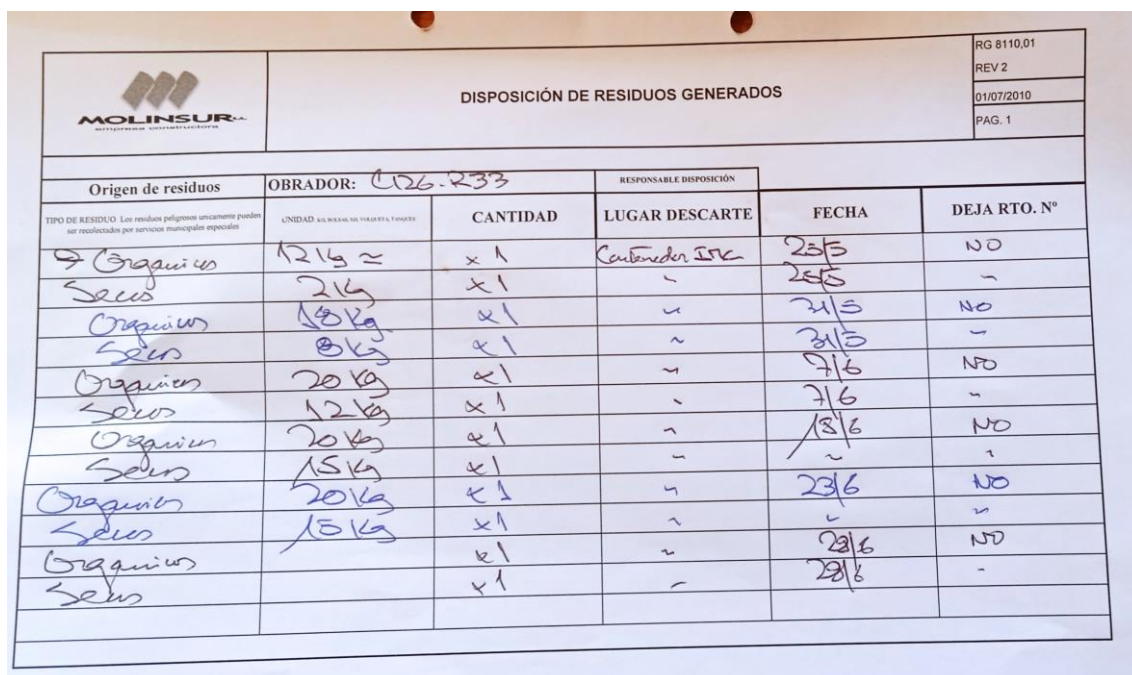 MOLINSUR S.A.
empresa constructora
DISPOSICIÓN DE RESIDUOS GENERADOS
RG 8110,01
REV 2
01/07/2010
PAG. 1
Origen de residuos OBRADOR: C126-R33 RESPONSABLE DISPOSICIÓN
TIPO DE RESIDUO Los residuos peligrosos unicamente pueden ser recolectados por servicios municipales especiales UNIDAD KG, BOLSAS, M3, VOLQUETA, TANQUES CANTIDAD LUGAR DESCARTE FECHA DEJA RTO. Nº
→ Organicos 12 Kg ≈ x 1 Contenedor 25/5 NO
Secos 2 Kg x 1 " 25/5 "
Organicos 18 Kg x 1 " 31/5 NO
Secos 8 Kg x 1 " 31/5 "
Organicos 20 Kg x 1 " 7/6 NO
Secos 12 Kg x 1 " 7/6 "
Organicos 20 Kg x 1 " 18/6 NO
Secos 15 Kg x 1 " " "
Organicos 20 Kg x 1 " 23/6 NO
Secos 15 Kg x 1 " " "
Organicos x 1 " 28/6 NO
Secos x 1 " 28/6 "